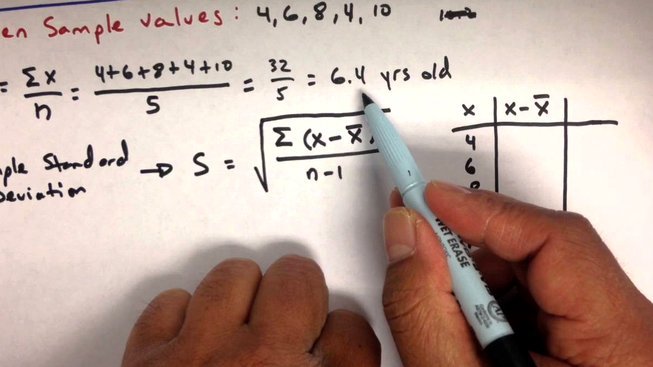 en Sample values: 4, 6, 8, 4, 10
= Σx / n = 4+6+8+4+10 / 5 = 32 / 5 = 6.4 yrs old
x | x-x̄
ple Standard Deviation → S = √ Σ (x-x̄) / n-1
4
6
8
WET ERASE